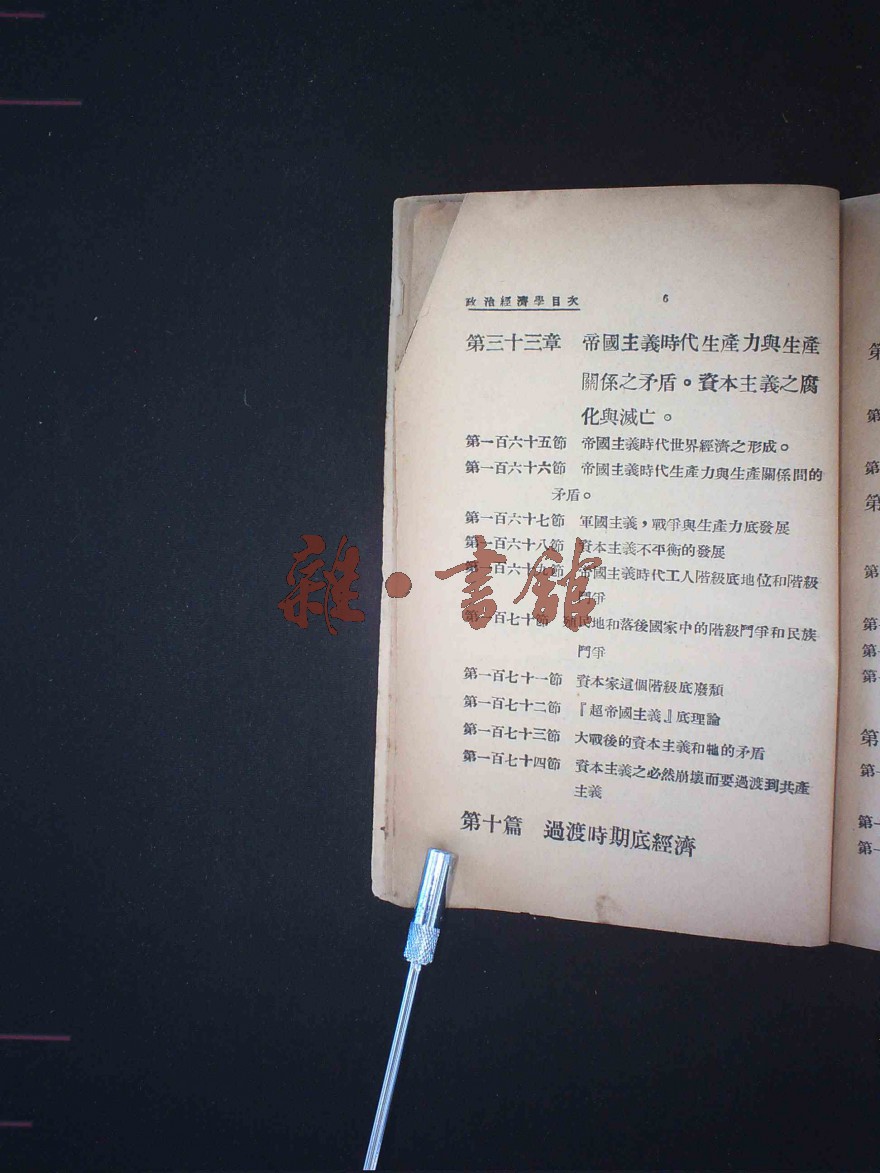 政治經濟學目次 6
第三十三章 帝國主義時代生產力與生產
關係之矛盾。資本主義之腐
化與滅亡。
第一百六十五節 帝國主義時代世界經濟之形成。
第一百六十六節 帝國主義時代生產力與生產關係間的
矛盾。
第一百六十七節 軍國主義，戰爭與生產力底發展
第一百六十八節 資本主義不平衡的發展
第一百六十九節 帝國主義時代工人階級底地位和階級
鬥爭
第一百七十節 殖民地和落後國家中的階級鬥爭和民族
鬥爭
第一百七十一節 資本家這個階級底廢頹
第一百七十二節 『超帝國主義』底理論
第一百七十三節 大戰後的資本主義和牠的矛盾
第一百七十四節 資本主義之必然崩壞而要過渡到共產
主義
第十篇 過渡時期底經濟
雜·書館